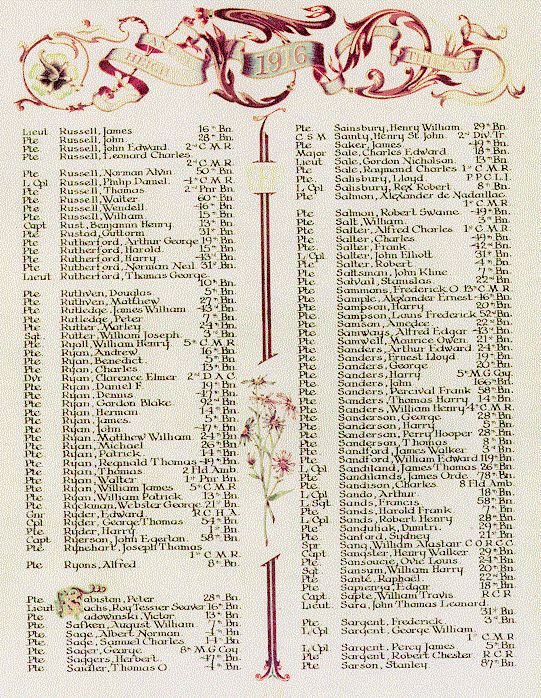 1916
Lieut Russell, James 16th Bn.
Pte Russell, John 28th Bn.
Pte Russell, John Edward 2nd C.M.R.
Pte Russell, Leonard Charles
2nd C.M.R.
Pte Russell, Norman Alvin 50th Bn.
L Cpl Russell, Philip Daniel 4th C.M.R.
Pte Russell, Thomas 2nd Pnr Bn.
Pte Russell, Walter 60th Bn.
Pte Russell, Wendell 46th Bn.
Pte Russell, William 15th Bn.
Capt Rust, Benjamin Henry 13th Bn.
Pte Rustad, Guttorm 31st Bn.
Pte Rutherford, Arthur George 19th Bn.
Pte Rutherford, Harold 15th Bn.
Pte Rutherford, Harry 43rd Bn.
Pte Rutherford, Norman Neil 31st Bn.
Lieut Rutherford, Thomas George
10th Bn.
Pte Ruthven, Douglas 5th Bn.
Pte Ruthven, Matthew 27th Bn.
Pte Rutledge, James William 43rd Bn.
Pte Rutledge, Peter 7th Bn.
Pte Rutter, Morley 24th Bn.
Sgt Rutter, William Joseph 3rd Bn.
Pte Ryall, William Henry 5th C.M.R.
Pte Ryan, Andrew 16th Bn.
Pte Ryan, Benedict 5th Bn.
Pte Ryan, Charles 13th Bn.
Dvr Ryan, Clarence Elmer 2nd D.A.C.
Pte Ryan, Daniel F 19th Bn.
Pte Ryan, Dennis 47th Bn.
Pte Ryan, Gordon Blake Bn.
Pte Ryan, Herman 14th Bn.
Pte Ryan, James 5th Bn.
Pte Ryan, John 47th Bn.
Pte Ryan, Matthew William 24th Bn.
Pte Ryan, Michael 26th Bn.
Pte Ryan, Patrick 14th Bn.
Pte Ryan, Reginald Thomas 49th Bn.
Pte Ryan, Thomas 2 Fld Amb.
Pte Ryan, Walter 1st Pnr Bn.
Pte Ryan, William James 5th C.M.R.
Pte Ryan, William Patrick 13th Bn.
Pte Ryckman, Webster George 21st Bn.
Gnr Ryder, Edward R.C.H.A.
Cpl Ryder, George Thomas 54th Bn.
Pte Ryder, Harry 1st Bn.
Capt Ryerson, John Egerton 58th Bn.
Pte Rynehart, Joseph Thomas
1st C.M.R.
Pte Ryons, Alfred 8th Bn.
Pte Sabistan, Peter 28th Bn.
Lieut Sachs, Roy Tesser Seaver 16th Bn.
Pte Sadowinski, Victor 13th Bn.
Pte Safken, August William 7th Bn.
Pte Sage, Albert Norman 4th Bn.
Pte Sage, Samuel Charles 14th Bn.
Pte Sager, George 8th M.G Coy
Pte Saggers, Herbert 47th Bn.
Pte Saidler, Thomas O 4th Bn.
Pte Sainsbury, Henry William 29th Bn.
C S M Sainty, Henry St. John 2nd Div. Tr.
Pte Saker, James 49th Bn.
Major Sale, Charles Edward 18th Bn.
Lieut Sale, Gordon Nicholson 13th Bn.
Pte Sale, Raymond Charles 1st C.M.R.
Pte Salisbury, Lloyd P.P.C.L.I.
L Cpl Salisbury, Rex Robert 8th Bn.
Pte Salmon, Alexander de Nadaillac
1st C.M.R.
Pte Salmon, Robert Swaine 49th Bn.
Pte Salt, William 3rd Bn.
Pte Salter, Alfred Charles 1st C.M.R.
Pte Salter, Charles 49th Bn.
Pte Salter, Frank 42nd Bn.
L Cpl Salter, John Elliott 31st Bn.
Pte Salter, Robert 4th Bn.
Pte Saltsman, John Kline 7th Bn.
Pte Salvail, Stanislas 22nd Bn.
Pte Sammons, Frederick O. 13th C.M.R.
Pte Sample, Alexander Ernest 46th Bn.
Pte Sampson, Harry 20th Bn.
Pte Sampson, Louis Frederick 52nd Bn.
Pte Samson, Amedee 22nd Bn.
Pte Samways, Alfred Edgar 43rd Bn.
Pte Samwell, Maurice Owen 21st Bn.
Pte Sanders, Arthur Edward 24th Bn.
Pte Sanders, Ernest Lloyd 19th Bn.
Pte Sanders, George 20th Bn.
Pte Sanders, Harry 5th M.G Coy.
Pte Sanders, John 166th Bn.
Pte Sanders, Percival Frank 58th Bn.
Pte Sanders, Thomas Harry 14th Bn.
Pte Sanders, William Henry 4th C.M.R.
Pte Sanderson, George 28th Bn.
Pte Sanderson, Harry 5th Bn.
Pte Sanderson, Perry Hooper 28th Bn.
Pte Sanderson, Thomas 8th Bn.
Pte Sandford, James Walker 3rd Bn.
Pte Sandford, William Edward 119th Bn.
L Cpl Sandiland, James Thomas 26th Bn.
Pte Sandilands, James Orde 78th Bn.
Pte Sandison, Charles 8 Fld Amb.
L Cpl Sando, Arthur 18th Bn.
L Sgt Sands, Francis 58th Bn.
Pte Sands, Harold Frank 7th Bn.
L Cpl Sands, Robert Henry 28th Bn.
Pte Sanduliak, Dimitri 29th Bn.
Pte Sanford, Sydney 21st Bn.
Spr Sang, William Alastair C.O.R.C.C.
Capt Sangster, Henry Walker 29th Bn.
Pte Sansoucie, Ovie Louis 24th Bn.
Sgt Sansum, William Harry 20th Bn.
Pte Santé, Raphael 22nd Bn.
Pte Sapienza, Edgar 18th Bn.
Capt Sapte, William Travis R.C.R
Lieut. Sara, John Thomas Leonard
31st Bn.
Pte Sargent, Frederick 3rd Bn.
L Cpl Sargent, George William
1st C.M.R.
L Cpl Sargent, Percy James 5th Bn.
Pte Sargent, Robert Chester R.C.R.
Pte Sarson, Stanley 87th Bn.